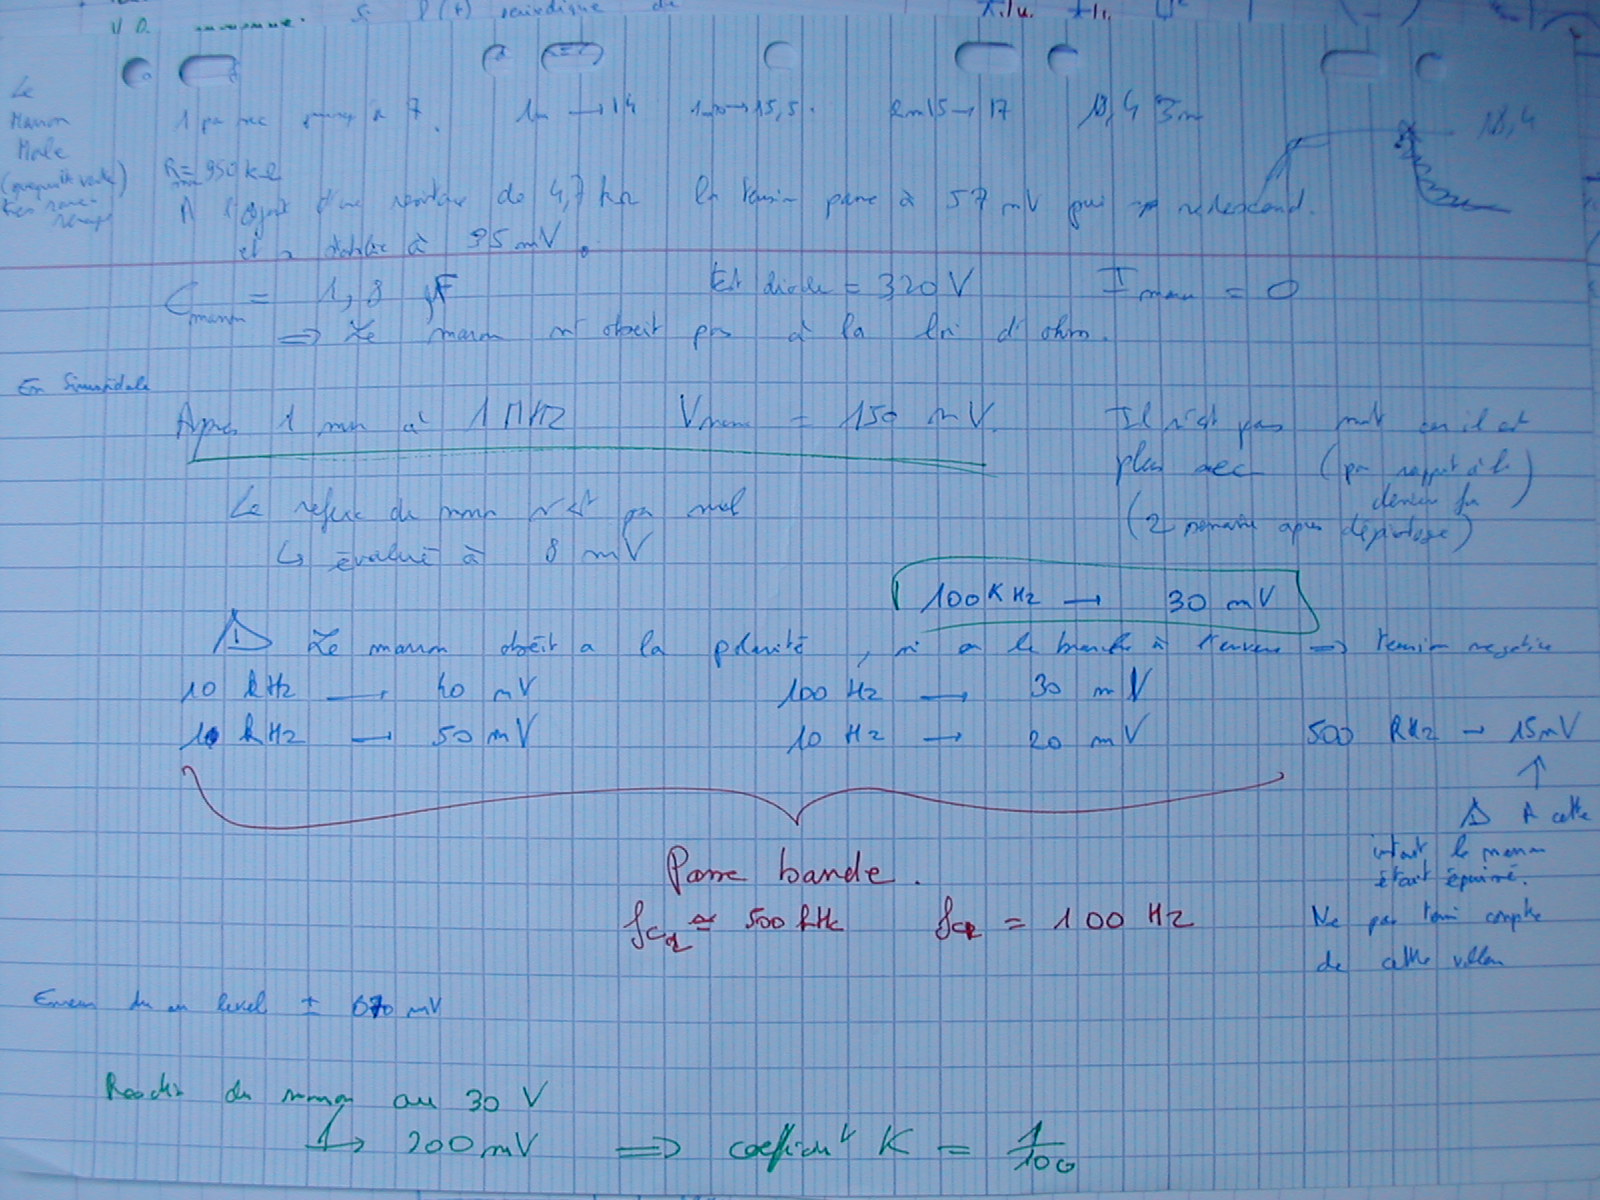 Le
Marron
Male
1 par sec jusqu'a 7. 1m → 14 1m30 → 15,5. 2m15 → 17 18,4 3m
18,4
R = 950 kΩ
A l'ajout d'une résistance de 4,7 kΩ la tension passe à 57 mV puis redescend.
et se stabilise à 35 mV.
C marron = 1,8 µF Et diode = 320 V I marron = 0
⇒ Le marron n'obeit pas à la loi d'ohm.
En Sinusoidale
Apres 1 min à 1 MHZ V marron = 150 mV.
Il n'est pas mort car il est
plus sec (par rapport à la
derniere fois)
(2 semaines apres dépiotage)
Le refus du marron n'est pas nul
↳ évalué à 8 mV
100 KHz → 30 mV
⚠ Le marron obéit a la polarité, si on le branche à l'envers ⇒ tension negative
10 kHz → 40 mV 100 Hz → 30 mV
10 kHz → 50 mV 10 Hz → 20 mV 500 kHz → 15mV
↑
⚠ A cette
instant le marron
était épuisé.
Ne pas tenir compte
de cette valeur
Passe bande.
fc2 ≃ 500 kHz fc1 = 100 Hz
Erreur level ± 670 mV
Reaction du marron au 30 V
↳ 200 mV ⇒ coefficient K = 1/100